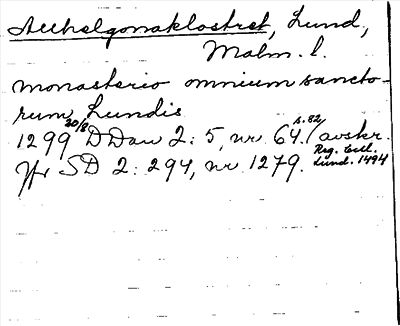 Allhelgonaklostret, Lund,
Malm. l.
monasterio omnium sancto-
rum Lundis
1299 20/8 DDan 2:5, nr 64. s. 82 (avskr.
Reg. Eccl.
Lund. 1494
Jfr SD 2: 294, nr 1279.